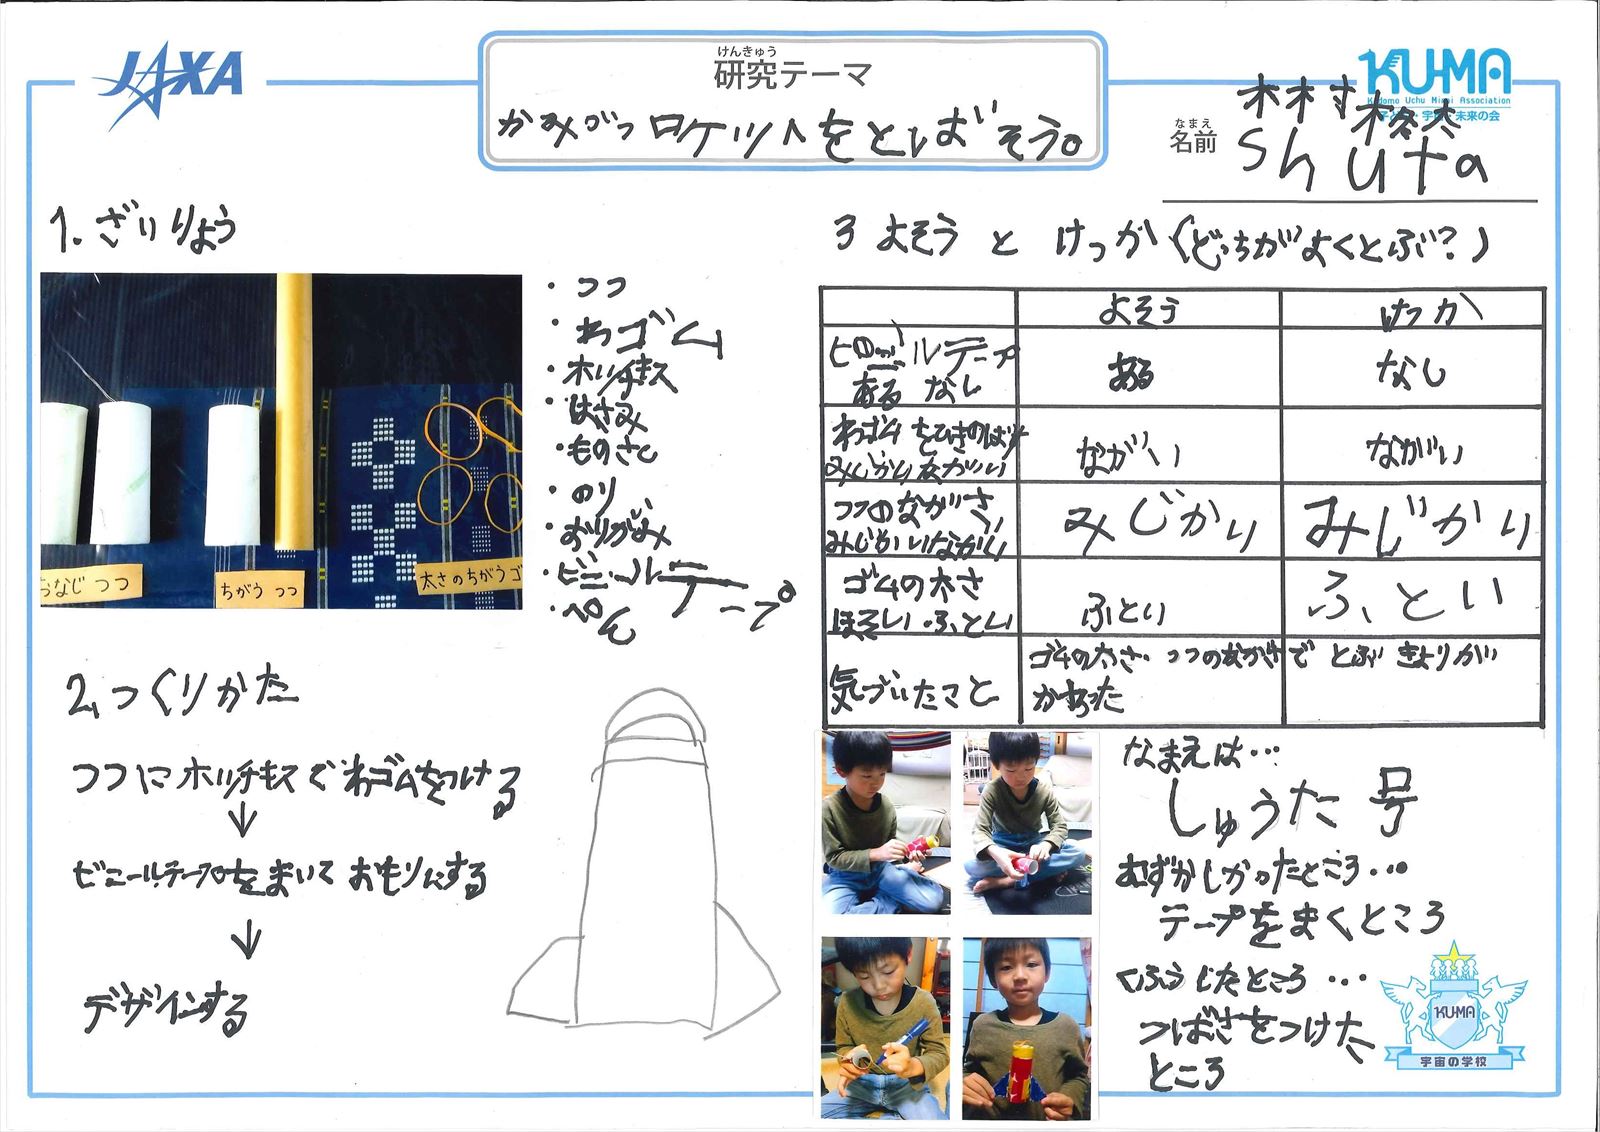 JAXA
けんきゅう
研究テーマ
かみづつロケットをとばそう。
KU-MA
Kodomo Uchu Mirai Association
子ども・宇宙・未来の会
なまえ
名前
Shuta
1. ざいりょう
おなじ つつ
ちがう つつ
太さのちがうゴ
・つつ
・わゴム
・ホッチキス
・はさみ
・ものさし
・のり
・おりがみ
・ビニールテープ
・ぺん
2. つくりかた
つつにホッチキスでわゴムをつける
↓
ビニールテープをまいておもりにする
↓
デザインする
3 よそう と けっか (どっちがよくとぶ?)
よそう けっか
ビニールテープ
ある なし
ある なし
わゴムをひきのばす
みじかい ながい
ながい ながい
つつのながさ
みじかいながい
みじかい みじかい
ゴムの太さ
ほそい・ふとい
ふとい ふとい
気づいたこと
ゴムの太さ・つつのながさで とぶ きょりがい
かわった
なまえは…
しゅうた号
むずかしかったところ…
テープをまくところ
くふうしたところ…
つばさをつけた
ところ
KU-MA
宇宙の学校